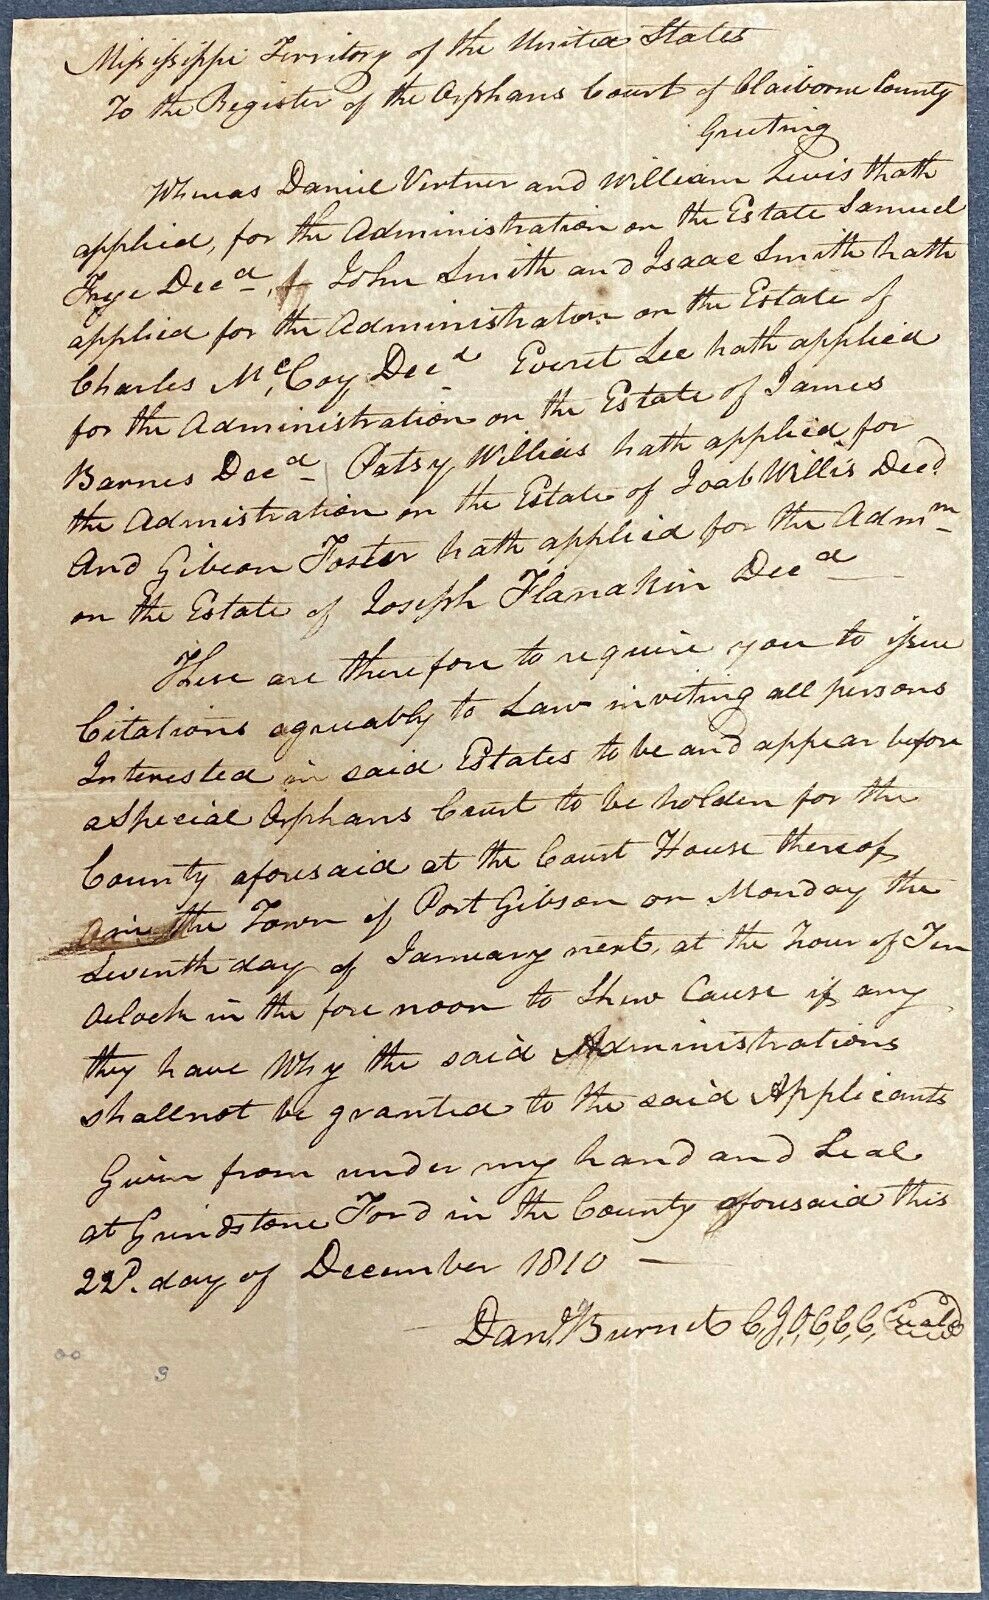 Mississippi Territory of the United States
To the Register of the Orphans Court of Claiborne County
Greeting
Whereas Daniel Vertner and William Lewis hath
applied, for the Administration on the Estate Samuel
Frye Decd, John Smith and Isaac Smith hath
applied for the Administration on the Estate of
Charles McCoy Decd Everet Lee hath applied
for the Administration on the Estate of James
Barnes Decd Patsy Willies hath applied for
the Admistration on the Estate of Joab Willis Decd.
And Gibeon Foster hath applied for the Admn
on the Estate of Joseph Flanakin Decd —
These are therefore to require you to issue
Citations agreeably to Law inviting all persons
Interested in said Estates to be and appear before
a Special Orphans Court to be holden for the
County aforesaid at the Court House thereof
in the Town of Port Gibson on Monday the
Seventh day of January next, at the hour of Ten
Oclock in the fore noon to Shew Cause if any
they have Why the said Administrations
shall not be granted to the said Applicants
Given from under my hand and Seal
at Grindstone Ford in the County aforesaid this
22d. day of December 1810 —
Danl Burnet C,J,O,C,C,C, Seal